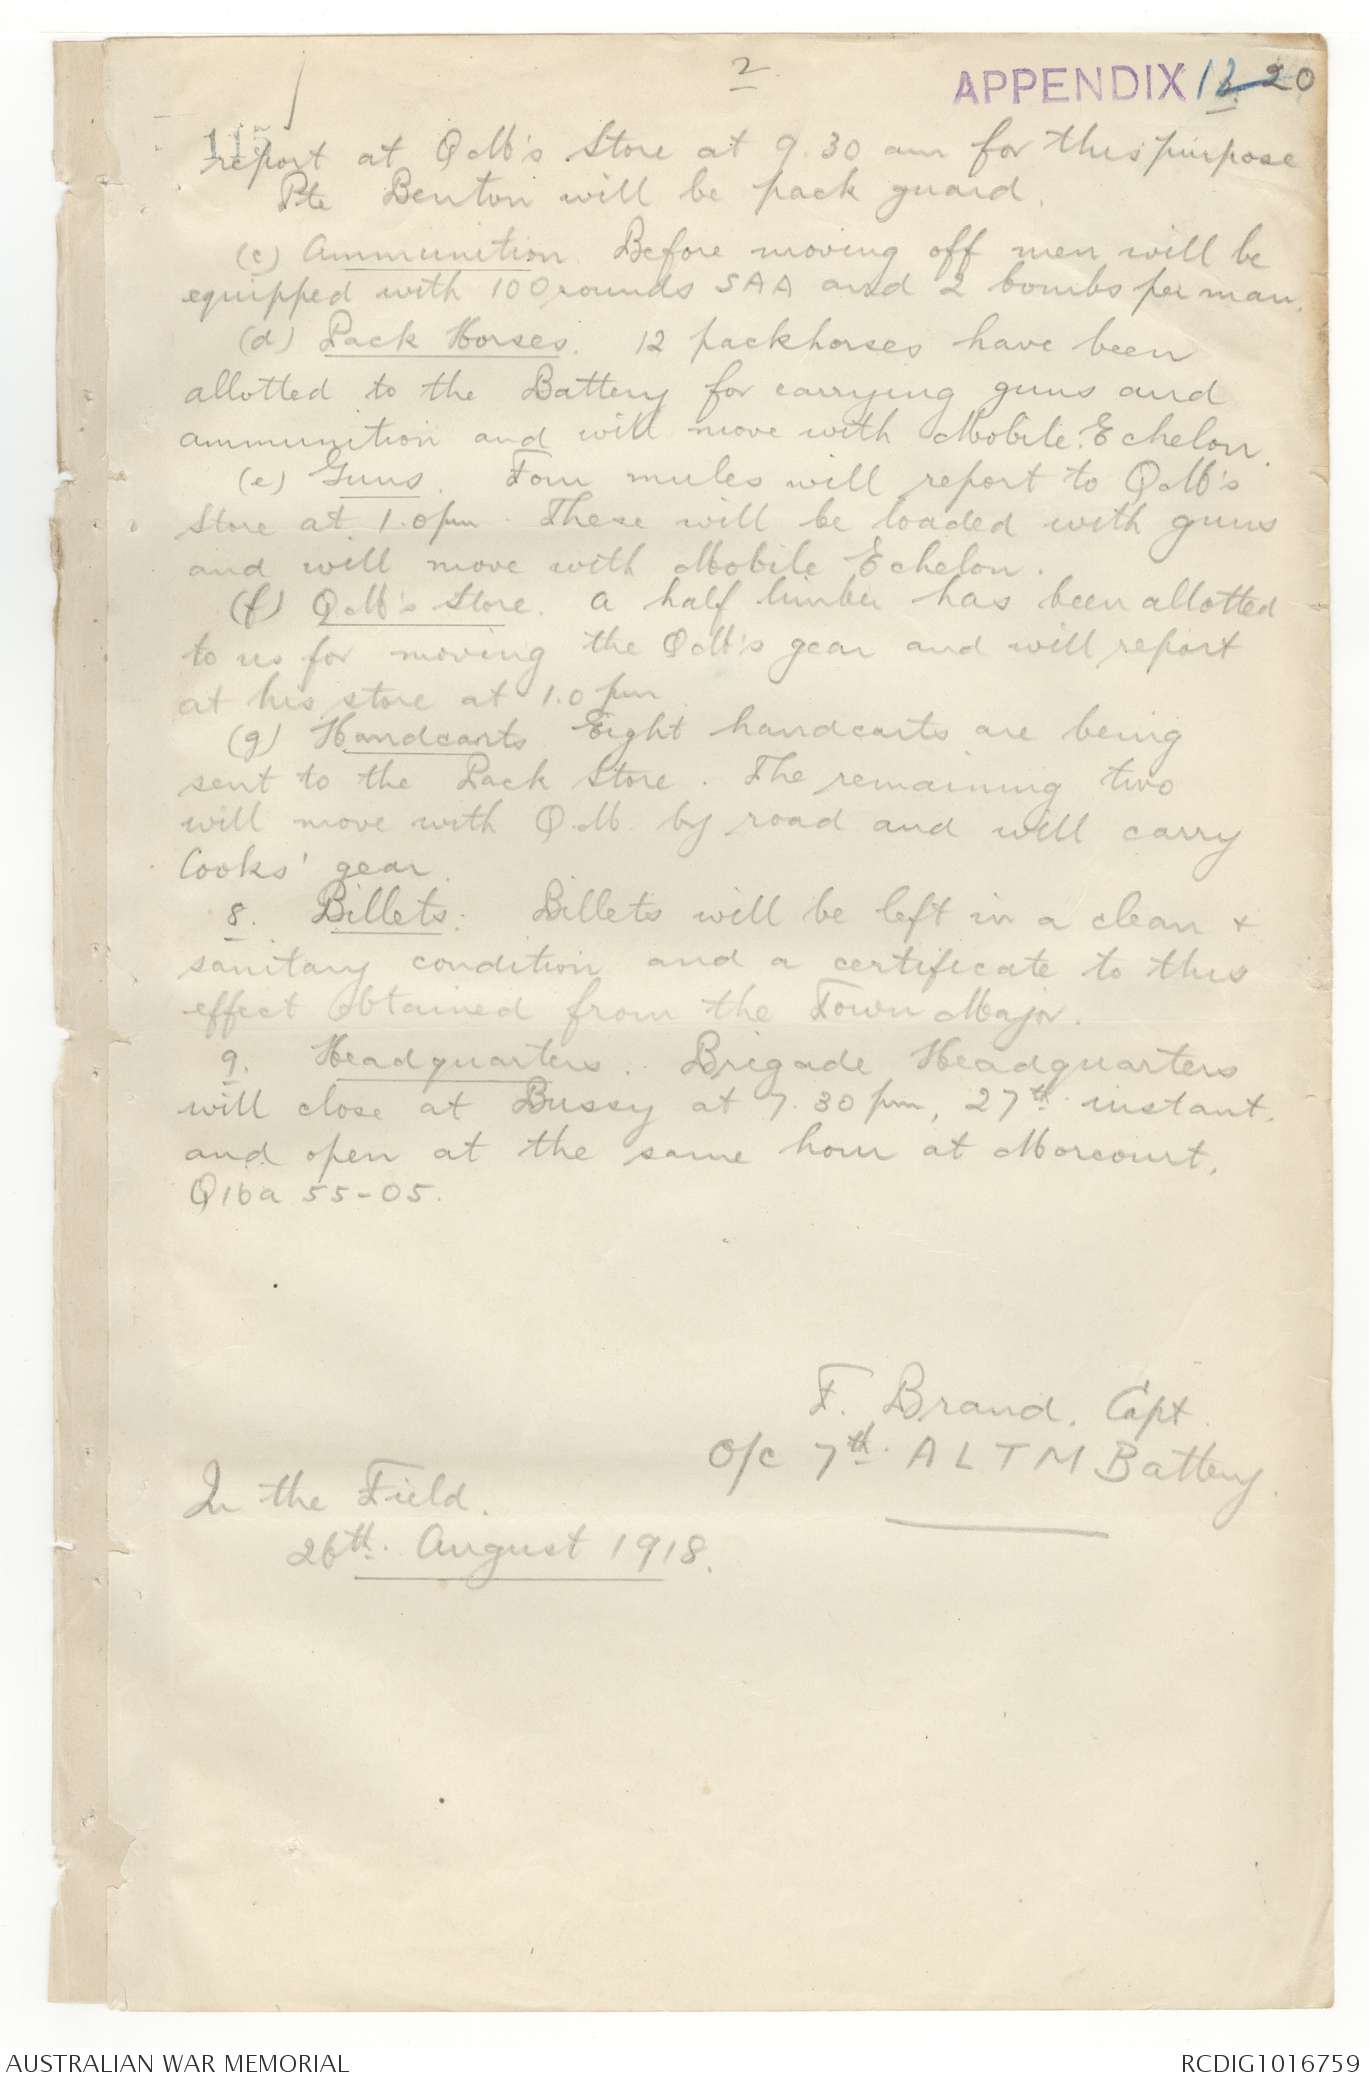 2
APPENDIX 12. 20
115
report at QM's Store at 9.30 am for this purpose
Pte Benton will be pack guard.
(c) Ammunition. Before moving off men will be
equipped with 100 rounds SAA and 2 bombs per man.
(d) Pack Horses. 12 packhorses have been
allotted to the Battery for carrying guns and
ammunition and will move with Mobile Echelon.
(e) Guns. Four mules will report to QM's
Store at 1.0 pm. These will be loaded with guns
and will move with Mobile Echelon.
(f) QM's Store. A half limber has been allotted
to us for moving the QM's gear and will report
at his store at 1.0 pm
(g) Handcarts Eight handcarts are being
sent to the Pack Store. The remaining two
will move with Q.M. by road and will carry
Cooks' gear.
8. Billets. Billets will be left in a clean +
sanitary condition and a certificate to this
effect obtained from the Town Major.
9. Headquarters. Brigade Headquarters
will close at Bussy at 7.30 pm, 27th instant.
and open at the same hour at Morcourt.
Q16a 55-05.
F. Brand. Capt.
O/c 7th. A L T M Battery.
In the Field.
26th. August 1918.
AUSTRALIAN WAR MEMORIAL
RCDIG1016759